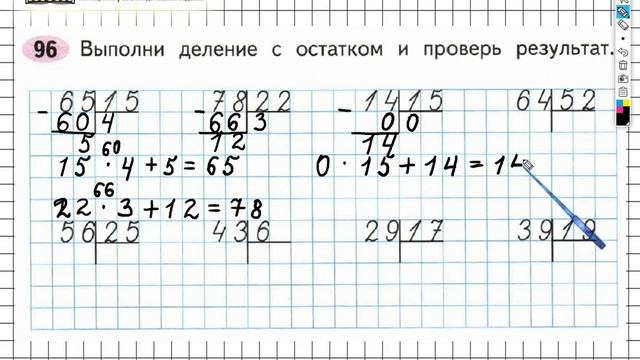 96 Выполни деление с остатком и проверь результат.
65 15 78 22 14 15 64 52
- 60 4 - 66 3 - 0 0
5 12 14
60
15 · 4 + 5 = 65 0 · 15 + 14 = 14
66
22 · 3 + 12 = 78
56 25 43 6 29 17 39 19